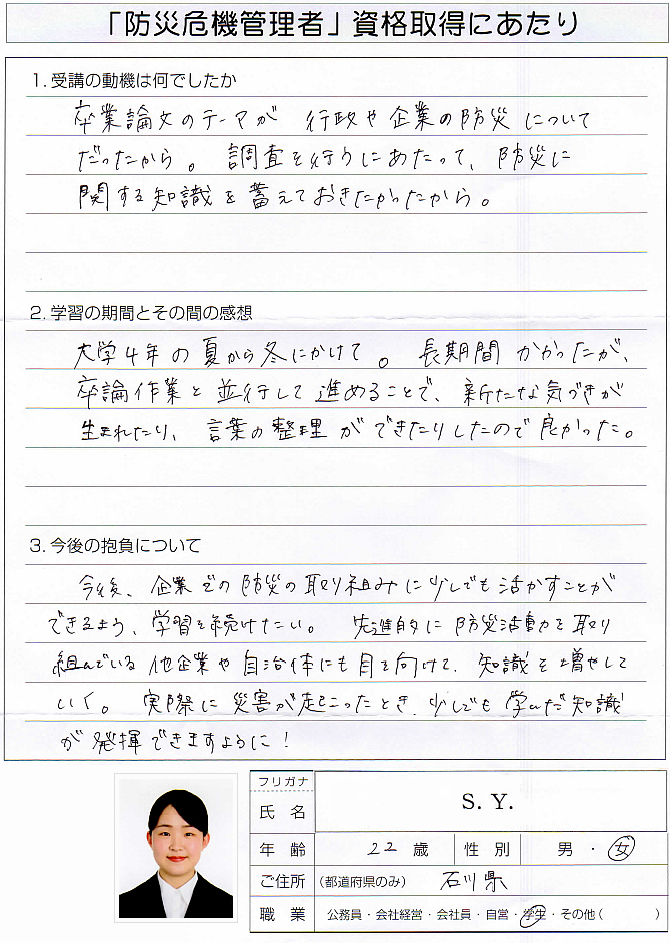 「防災危機管理者」資格取得にあたり
1. 受講の動機は何でしたか
卒業論文のテーマが 行政や企業の防災について
だったから。 調査を行うにあたって、防災に
関する知識を蓄えておきたかったから。
2. 学習の期間とその間の感想
大学4年の夏から冬にかけて。 長期間かかったが、
卒論作業と並行して進めることで、新たな気づきが
生まれたり、言葉の整理ができたりしたので良かった。
3. 今後の抱負について
今後、企業での防災の取り組みに少しでも活かすことが
できるよう、学習を続けたい。 先進的に防災活動を取り
組んでいる他企業や自治体にも目を向けて、知識を増やして
いく。 実際に災害が起こったとき、少しでも学んだ知識
が発揮できますように!
フリガナ
氏 名 S. Y.
年 齢 22 歳 性 別 男 ・ 女
ご住所 (都道府県のみ) 石川県
職 業 公務員・会社経営・会社員・自営・学生・その他( )